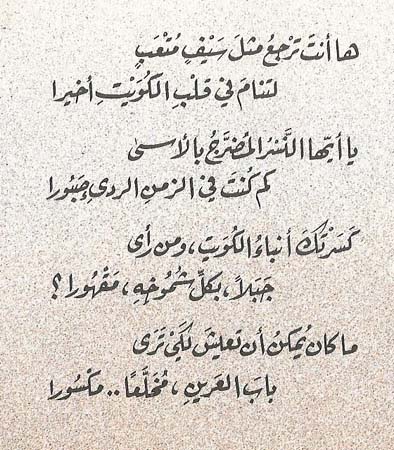 ها أنتَ ترْجعُ مثلَ سَيْفٍ مُتْعَبٍ
لتنامَ في قلْبِ الكويْتِ أخيرا
يا أيّها النَّسْرُ المُضرَّجُ بالأسى
كم كُنتَ في الزمنِ الردئِ صَبُورا
كَسَرتْكَ أنباءُ الكويتِ، ومن رأى
جَبَلاً، بكلِّ شُمُوخِهِ، مَقْهُورا؟
ما كان يُمكنُ أن تعيشَ لكَيْ تَرَى
بابَ العَرينِ، مُخَلَّعًا.. مكْسُورا